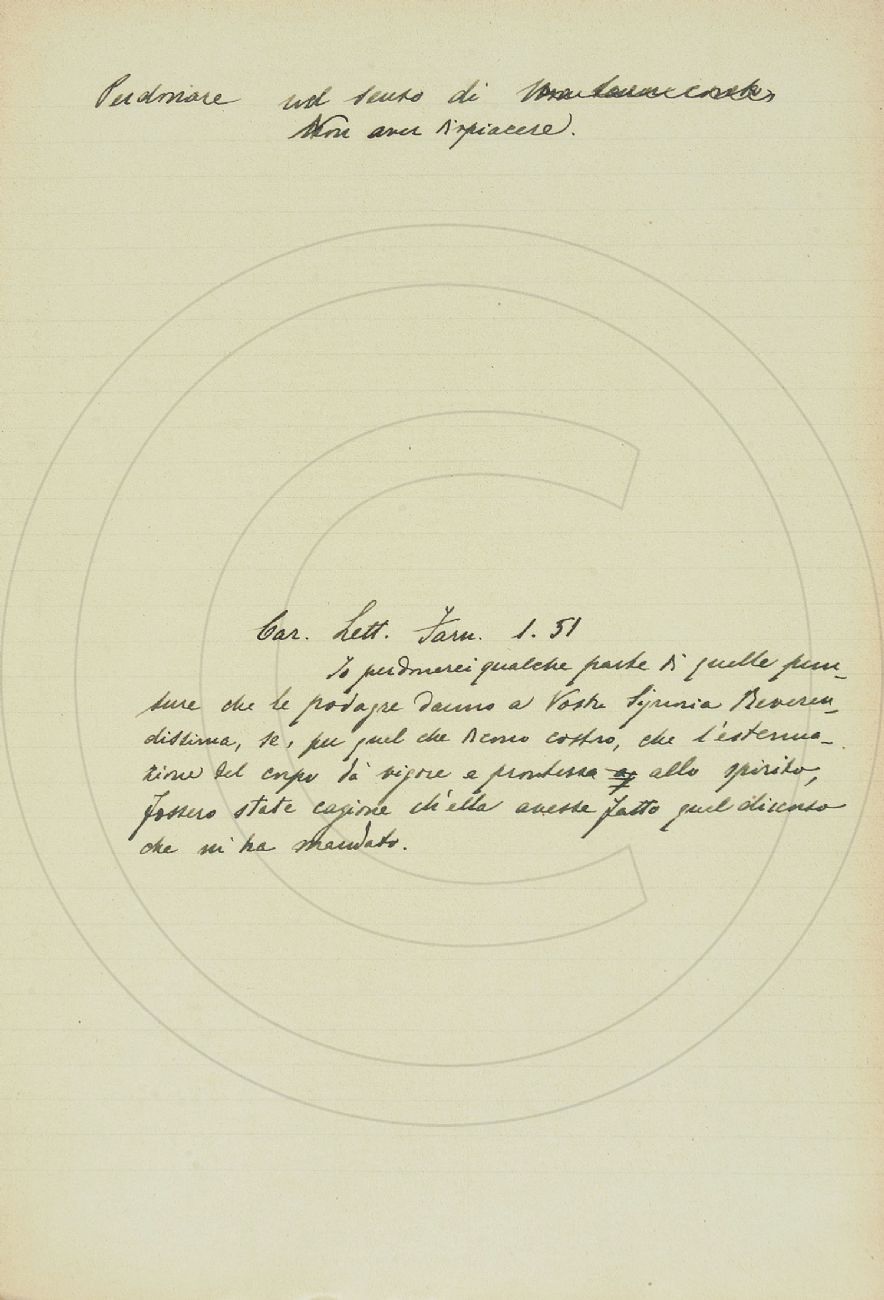 Perdonare nel senso di
Non aver dispiacere.
Car. Lett. Farn. 1. 51
Io perdonerei qualche parte di quelle pun-
ture che le podagre danno a Vostra Signoria Reveren-
dissima, se, per quel che dicono costro, che l'estenua-
zione del corpo dà vigore e prontezza allo spirito,
fossero state cagione ch'ella avesse fatto quel discorso
che mi ha mandato.